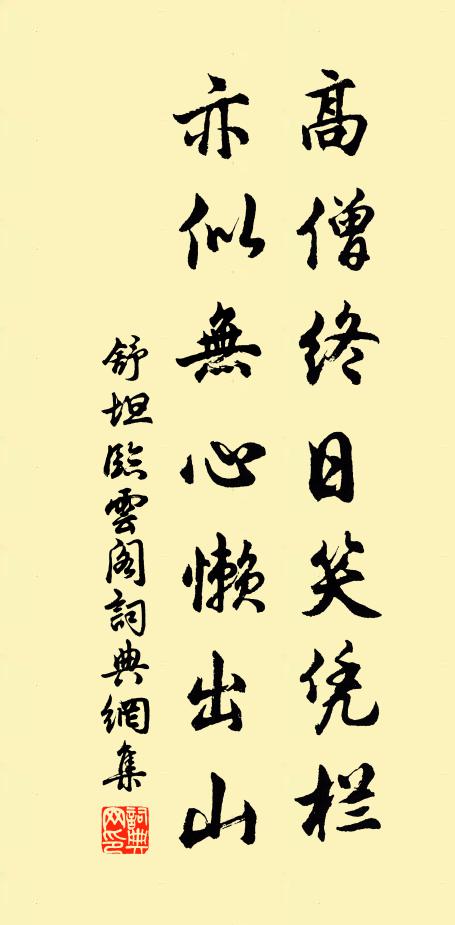 高僧终日笑凭栏
亦似無心懒出山
舒坦臨雲阁詞典網集
詞典
网印